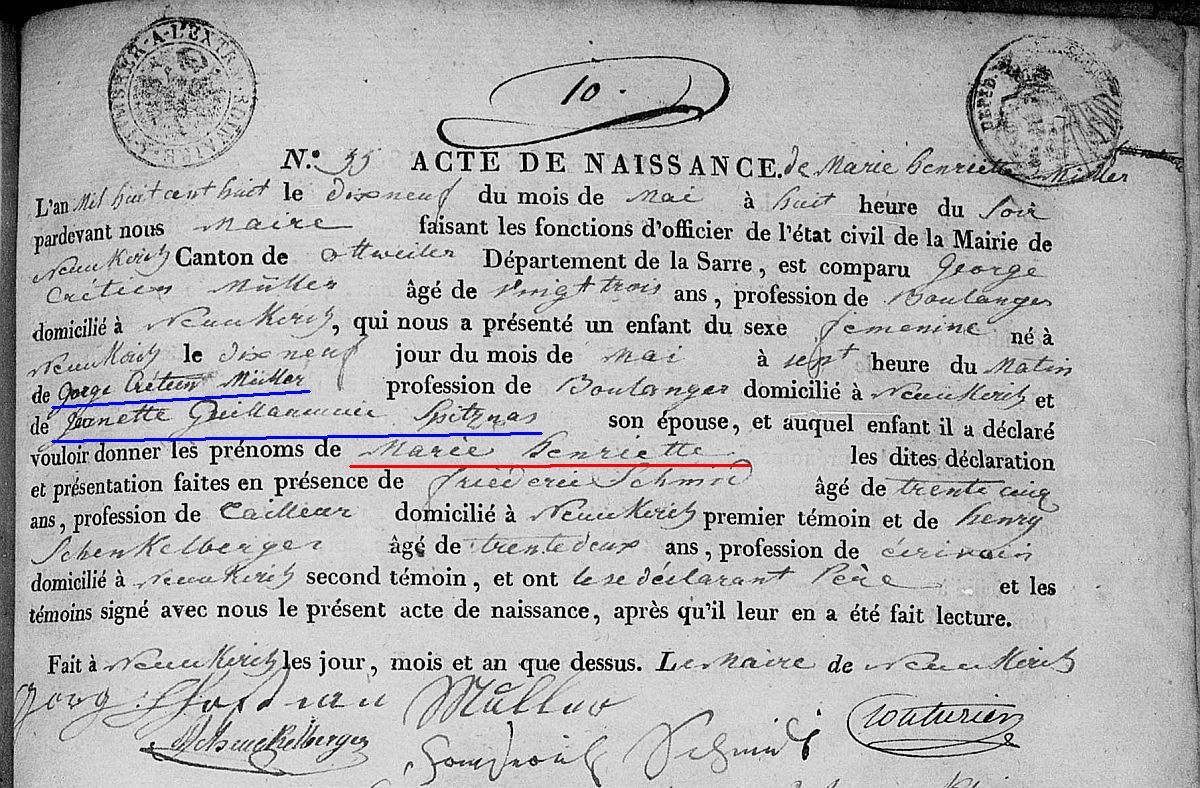 TIMBRE-A-L'EXTRAORDINAIRE
DEPTD.
10.
N.° 35 ACTE DE NAISSANCE. de Marie henriette Müller
L'an Mil huit cent huit le dixneuf du mois de Mai à huit heure du Soir
pardevant nous Maire faisant les fonctions d'officier de l'état civil de la Mairie de
Neunkirch Canton de Ottweiler Département de la Sarre, est comparu George
Crétien Müller âgé de vingt trois ans, profession de Boulanger
domicilié à Neunkirch, qui nous a présenté un enfant du sexe femenine né à
Neunkirch le dixneuf jour du mois de Mai à sept heure du Matin
de Gorge Crétien Müller profession de Boulanger domicilié à Neunkirch et
de Jeanette Guillaumine Spitznas son épouse, et auquel enfant il a déclaré
vouloir donner les prénoms de Marie henriette les dites déclaration
et présentation faites en présence de friederic Schmid âgé de trente cinq
ans, profession de Tailleur domicilié à Neunkirch premier témoin et de henry
Schenkelberger âgé de trente deux ans, profession de écrivain
domicilié à Neunkirch second témoin, et ont le declarant Père et les
témoins signé avec nous le présent acte de naissance, après qu'il leur en a été fait lecture.
Fait à Neunkirch les jour, mois et an que dessus. Le Maire de Neunkirch
Georg Christian Müller
Schenkelberger Schmidt Couturier